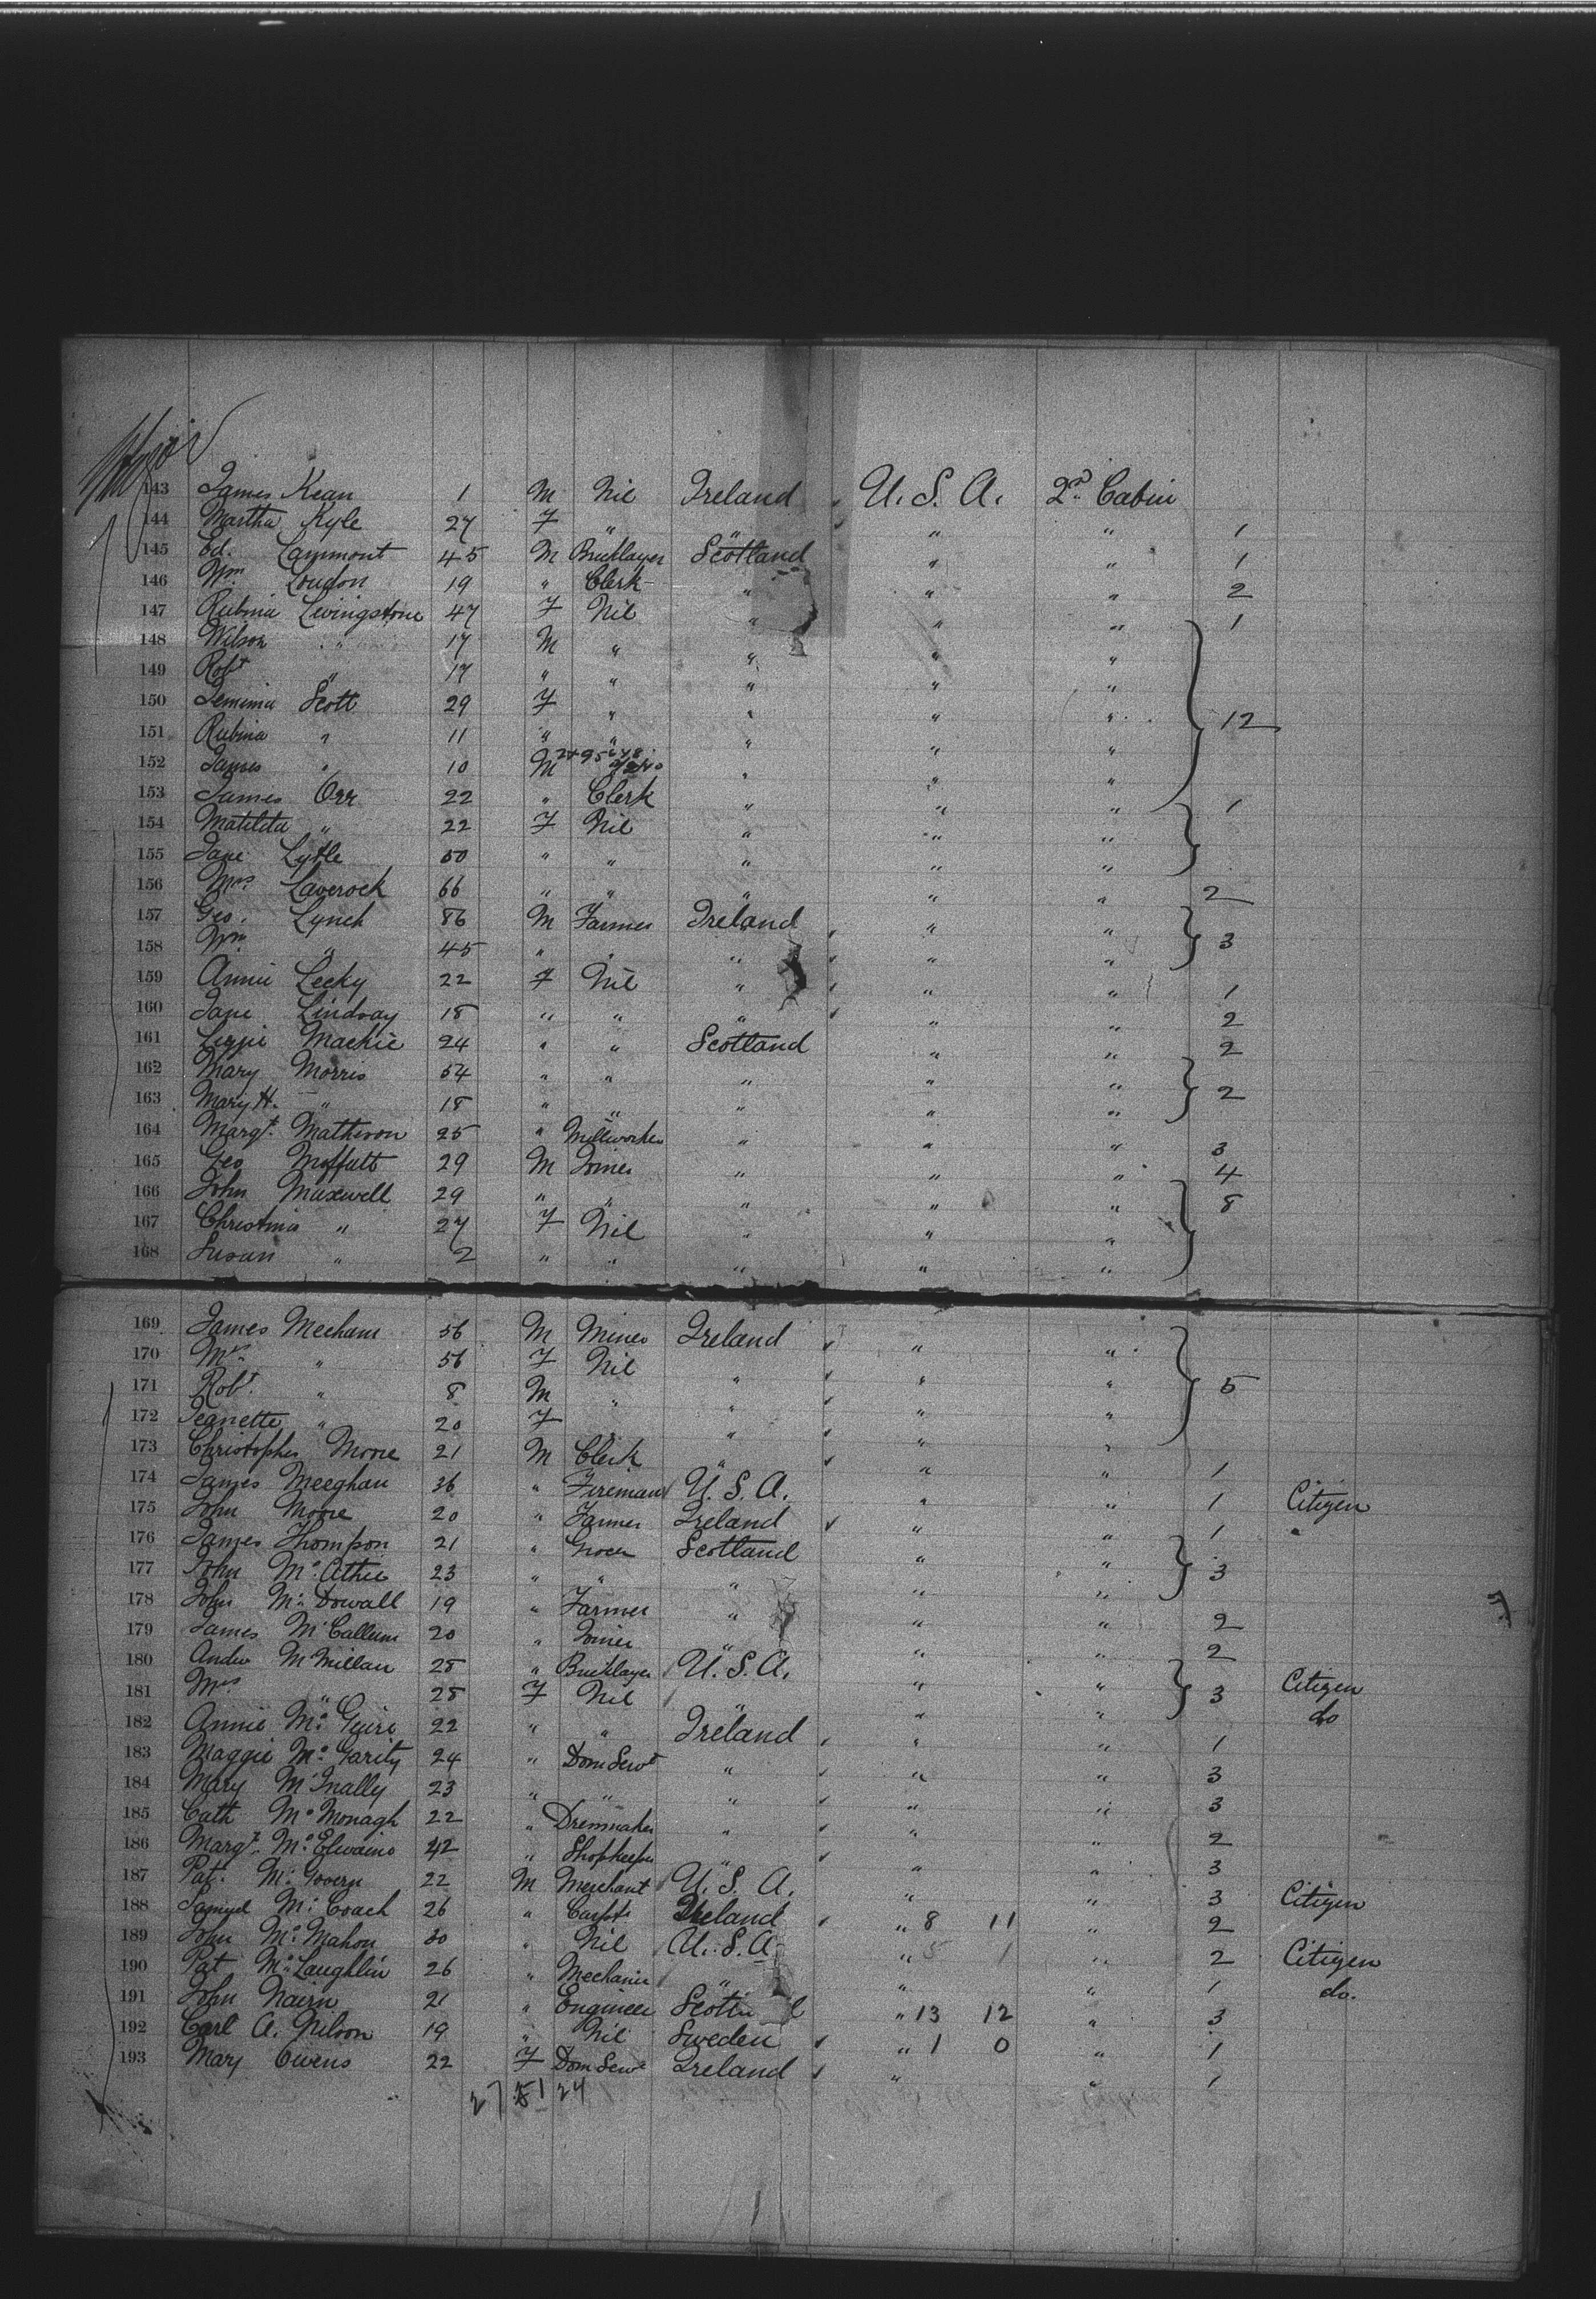 143 James Kean 1 M Nil Ireland U. S. A. 2nd Cabin
144 Martha Kyle 27 F " " " " 1
145 Ed. Lammont 45 M Bricklayer Scotland " " 1
146 Wm Loudon 19 " Clerk " " " 2
147 Rubina Livingstone 47 F Nil " " " 1
148 Wilson " 17 M " " " "
149 Robt " 17 " " " " "
150 Jemima Scott 29 F " " " " 12
151 Rubina " 11 " " " " "
152 James " 10 M " " "
153 James Orr 22 " Clerk " " " 1
154 Matilda " 22 F Nil " " "
155 Jane Lytle 50 " " " " "
156 Mrs Laverock 66 " " " " " 2
157 Geo. Lynch 86 M Farmer Ireland " " 3
158 Wm " 45 " " " " "
159 Annie Lecky 22 F Nil " " " 1
160 Jane Lindsay 18 " " " " " 2
161 Lizzie Mackie 24 " " Scotland " " 2
162 Mary Morris 54 " " " " " 2
163 Mary H. " 18 " " " " "
164 Margt. Matheson 25 " Millworker " " " 3
165 Geo Moffatt 29 M Joiner " " " 4
166 John Maxwell 29 " " " " " 8
167 Christina " 27 F Nil " " "
168 Susan " 2 " " " " "
169 James Mecham 56 M Miner Ireland " "
170 Mrs " 56 F Nil " " "
171 Robt. " 8 M " " " " 5
172 Jeanette " 20 F " " " "
173 Christopher Moore 21 M Clerk " " " 1
174 James Meeghan 36 " Fireman U. S. A. " " 1 Citizen
175 John Moore 20 " Farmer Ireland " " 1
176 James Thompson 21 " Grocer Scotland " " 3
177 John McAthie 23 " " " " "
178 John McDowall 19 " Farmer " " " 2
179 James McCallum 20 " Joiner " " " 2
180 Andw McMillan 28 " Bricklayer U. S. A. " " 3 Citizen
181 Mrs " 28 F Nil " " " do
182 Annie McGuire 22 " " Ireland " " 1
183 Maggie McGarity 24 " Dom Servt " " " 3
184 Mary McInally 23 " " " " " 3
185 Cath McMonagh 22 " Dressmaker " " " 2
186 Margt. McElwaine 42 " Shopkeeper " " " 3
187 Pat. McGovern 22 M Merchant U. S. A. " " 3 Citizen
188 Samuel McCoach 26 " Carptr Ireland " 8 11 " 2
189 John McMahon 30 " Nil U. S. A " 5 1 " 2 Citizen
190 Pat McLaughlin 26 " Mechanic " " " 1 do.
191 John Nairn 21 " Engineer " 13 12 " 3
192 Carl A. Nilson 19 " Nil Sweden " 1 0 " 1
193 Mary Owens 22 F Dom Servt Ireland " " 1
27 51 24